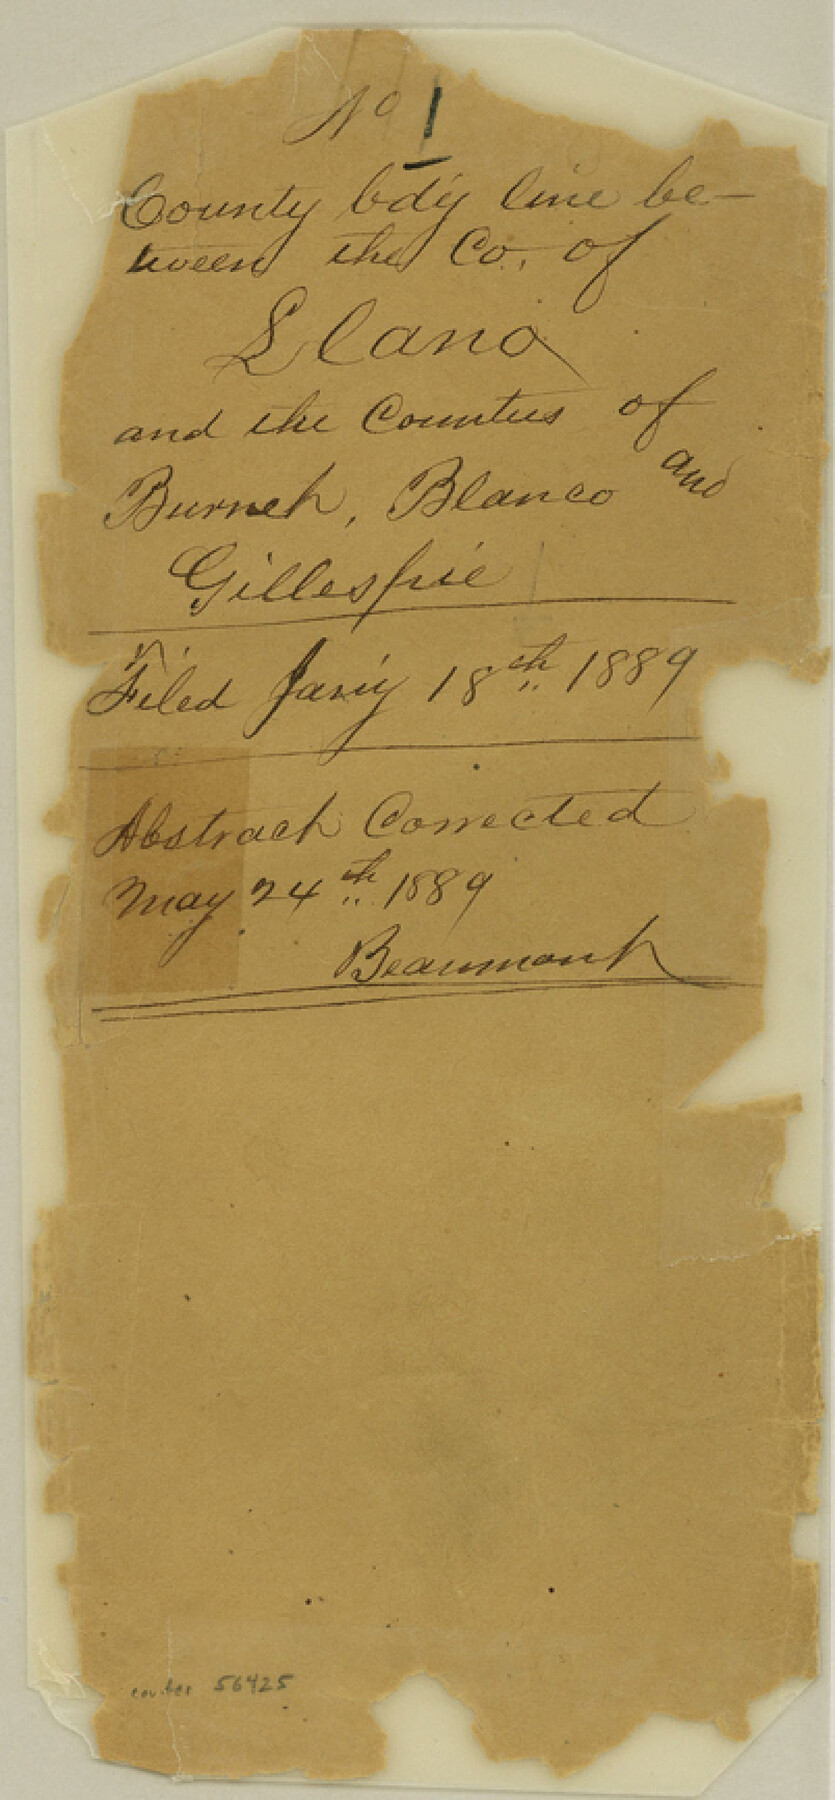 No 1
County bdy line be-
tween the Co. of
Llano
and the Counties of
Burnet, Blanco and
Gillespie
Filed Jan'y 18th 1889
Abstract Corrected
May 24th 1889
Beaumont
counter 56425